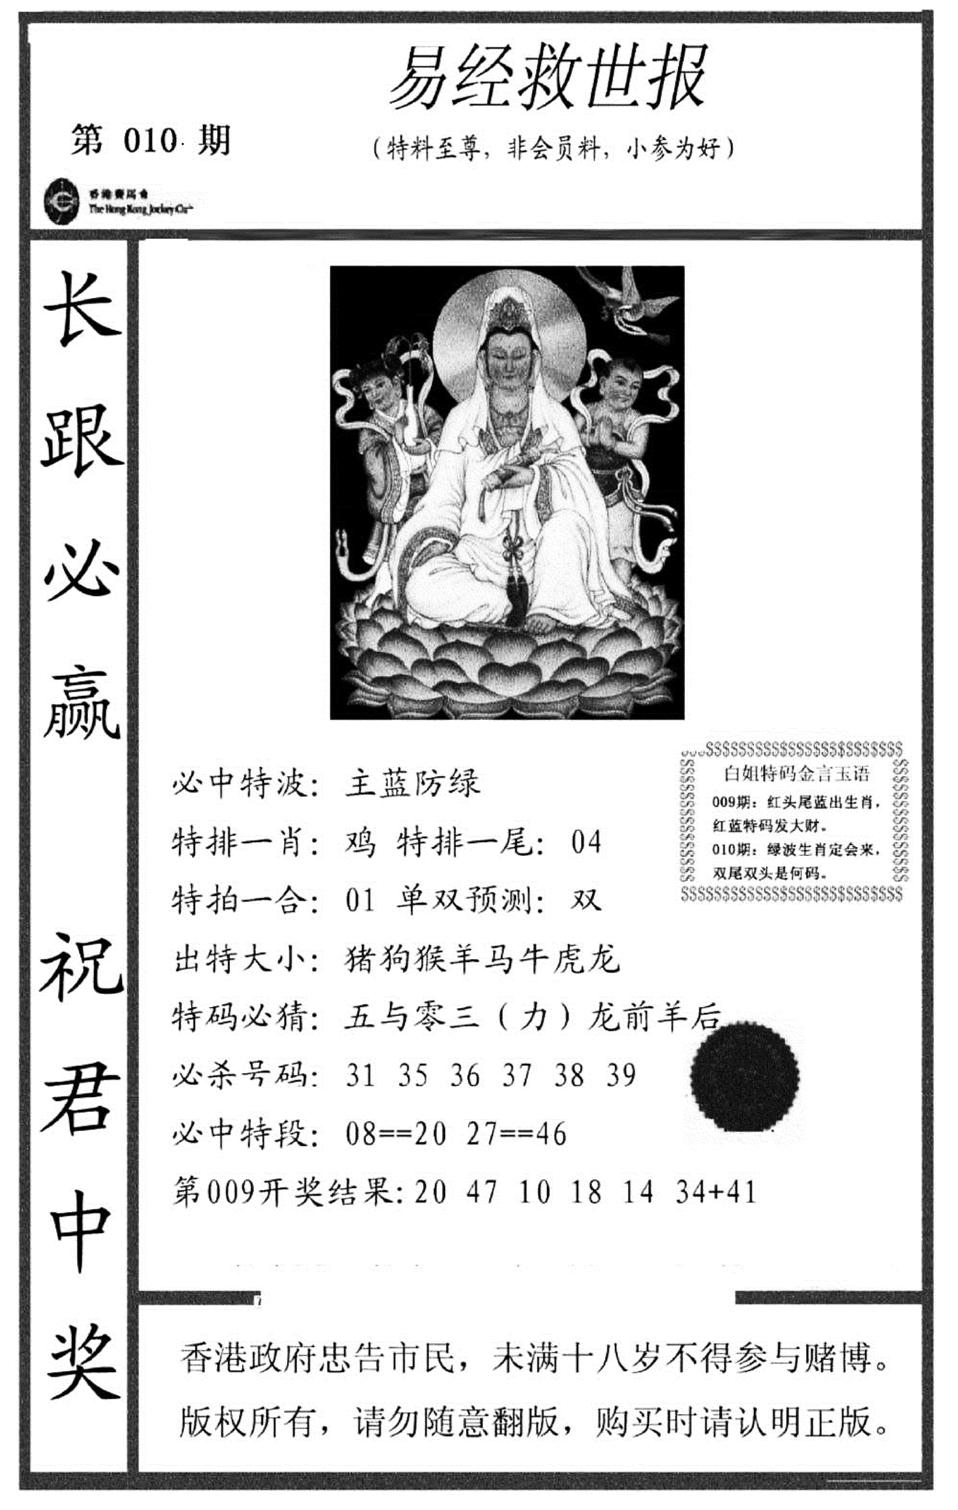 易经救世报
第 010 期
（特料至尊，非会员料，小参为好）
香港賽馬會
The Hong Kong Jockey Club
长跟必赢 祝君中奖
必中特波：主蓝防绿
特排一肖：鸡 特排一尾：04
特拍一合：01 单双预测：双
出特大小：猪狗猴羊马牛虎龙
特码必猜：五与零三（力）龙前羊后
必杀号码：31 35 36 37 38 39
必中特段：08==20 27==46
第009开奖结果:20 47 10 18 14 34+41
$$$$$$$$$$$$$$$$$$$$$$$$
白姐特码金言玉语
009期：红头尾蓝出生肖，
红蓝特码发大财。
010期：绿波生肖定会来，
双尾双头是何码。
$$$$$$$$$$$$$$$$$$$$$$$$$$$
香港政府忠告市民，未满十八岁不得参与赌博。
版权所有，请勿随意翻版，购买时请认明正版。